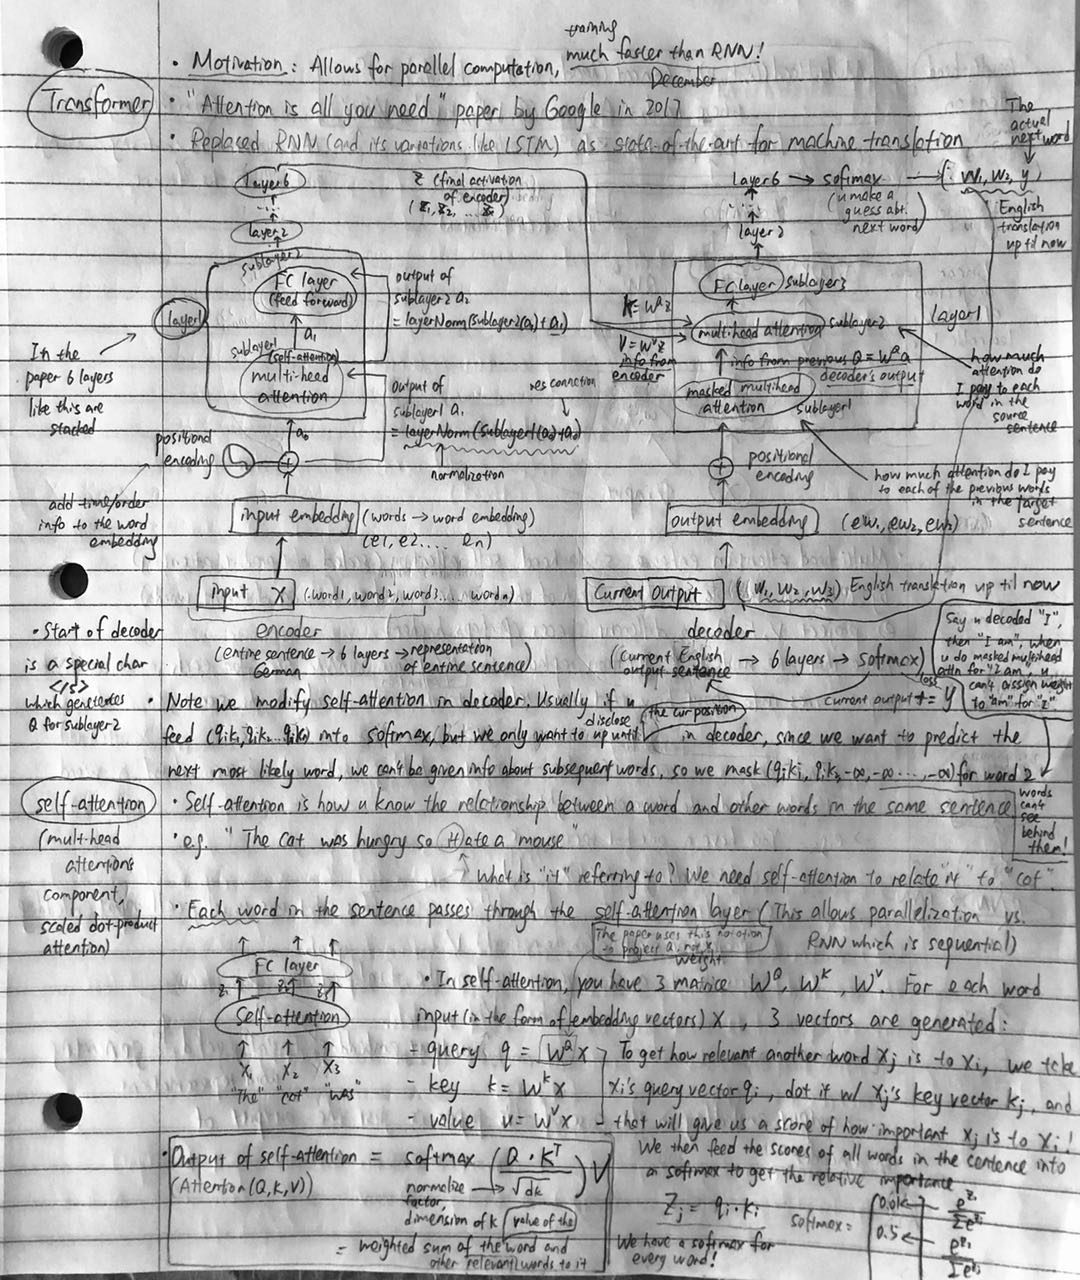 Transformer
• Motivation: Allows for parallel computation, training much faster than RNN!
• "Attention is all you need" paper by Google in December 2017
• Replaced RNN (and its variations like LSTM) as state-of-the-art for machine translation
The
actual
next
word
layer6
...
layer2
z (final activation
of encoder)
layer6 → softmax → (: W1, W2, y)
(u make a
guess abt.
next word)
English
translation
up til now
...
layer2
sublayer2
FC layer
(feed forward)
a1
sublayer1
(self-attention)
multi-head
attention
layer1
a0
output of
sublayer2 a2
= layerNorm(sublayer2(a1)+a1)
output of
sublayer1 a1
= layerNorm(sublayer1(a0)+a0)
res connection
normalization
In the
paper 6 layers
like this are
stacked
positional
encoding
+
add time/order
info to the word
embedding
input embedding (words → word embedding)
(e1, e2.... en)
input X (word1, word2, word3.... wordn)
encoder
(entire sentence → 6 layers → representation
German of entire sentence)
FC layer sublayer3
multihead attention sublayer2
layer1
K = W^K z
V = W^V z
info from
encoder
info from previous Q = W^Q a
decoder's output
masked multihead
attention sublayer1
how much
attention do
I pay to each
word in the
source
sentence
+
positional
encoding
how much attention do I pay
to each of the previous words
in the target
sentence
output embedding (ew1, ew2, ew3)
Current Output (W1, W2, W3) English translation up til now
decoder
(current English → 6 layers → softmax)
output sentence
loss
current output += y
Say u decoded "I",
then "I am", when
u do masked multihead
attn for "I am", u
can't assign weight
to "am" for "I"
• Start of decoder
is a special char
</s>
which generates
Q for sublayer2
• Note we modify self-attention in decoder. Usually if u
feed (qik1, qik2...qikn) into softmax, but we only want to disclose up until the cur position in decoder, since we want to predict the
next most likely word, we can't be given info about subsequent words, so we mask (qik1, qik2, -∞, -∞ ...., -∞) for word 2
words
can't
see
behind
them!
self-attention
(multi-head
attentions
component,
scaled dot-product
attention)
• Self-attention is how u know the relationship between a word and other words in the same sentence
• e.g. "The cat was hungry so it ate a mouse"
What is "it" referring to? We need self-attention to relate "it" to "cat".
• Each word in the sentence passes through the self-attention layer (This allows parallelization vs.
RNN which is sequential)
The paper uses this notation
to project a, not x
weight
FC layer
z1 z2 z3
Self-attention
X1 X2 X3
"The" "cat" "was"
• In self-attention, you have 3 matrice W^Q, W^K, W^V. For each word
input (in the form of embedding vectors) X, 3 vectors are generated:
- query q = W^Q x
- key k = W^K x
- value v = W^V x
To get how relevant another word Xj is to Xi, we take
Xi's query vector qi, dot it w/ Xj's key vector kj, and
that will give us a score of how important Xj is to Xi!
We then feed the scores of all words in the sentence into
a softmax to get the relative importance
• Output of self-attention = softmax (Q · K^T / √dk) V
(Attention(Q, K, V))
normalize
factor,
dimension of k
= weighted sum of the value of the word and
other relevant words to it
Zj = qi · kj
We have a softmax for
every word!
softmax =
0.5